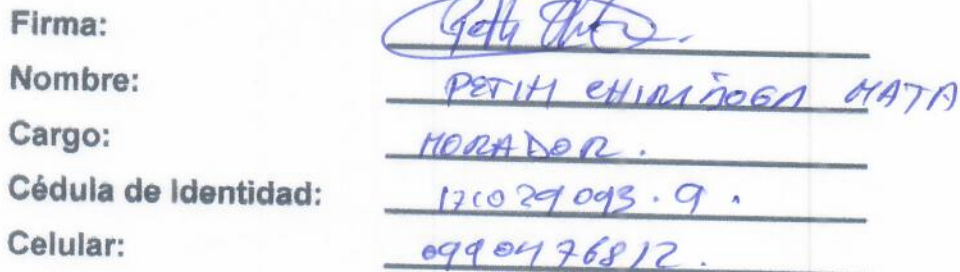 Firma:
Nombre: MATA
Cargo: MORADOR.
Cédula de Identidad: 171029093.9.
Celular: 0990476812.